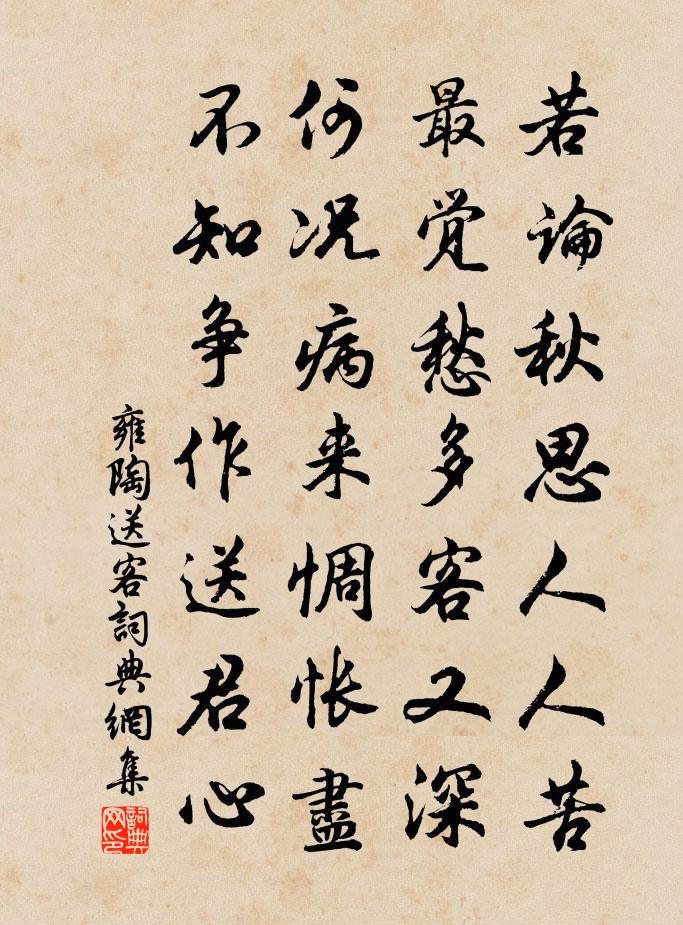 若論秋思人人苦
最覚愁多客又深
何况病来惆怅盡
不知争作送君心
雍陶送客詞典網集
詞典网印